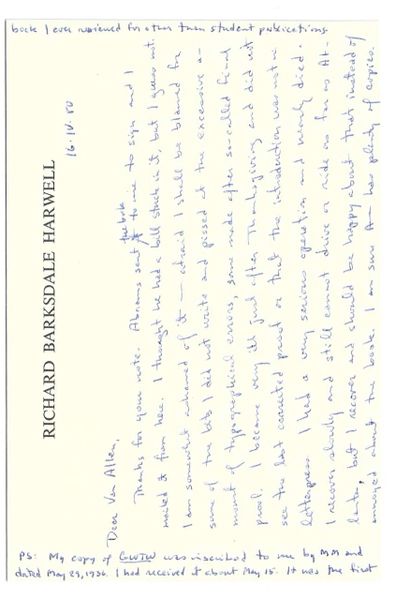 RICHARD BARKSDALE HARWELL
16-IV-80
Dear Van Allen,
Thanks for your note. Abrams sent the book to me to sign and I
mailed it from here. I thought he had a bill stuck in it, but I guess not.
I am somewhat ashamed of it — afraid I shall be blamed for
some of the bits I did not write and pissed at the excessive a-
mount of typographical errors, some made after so-called final
proof. I became very ill just after Thanksgiving and did not
see the last corrected proof or that the introduction was not in
letterpress. I had a very serious operation and nearly died.
I recover slowly and still cannot drive or ride as far as At-
lanta, but I recover and should be happy about that instead of
annoyed about the book. I am sure has plenty of copies.
PS: My copy of GWTW was inscribed to me by MM and
dated May 25, 1936. I had received it about May 15. It was the first
book I ever reviewed for other than student publications.